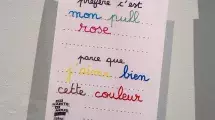 préfère c'est
mon pull
rose
parce que
j'aime bien
cette couleur